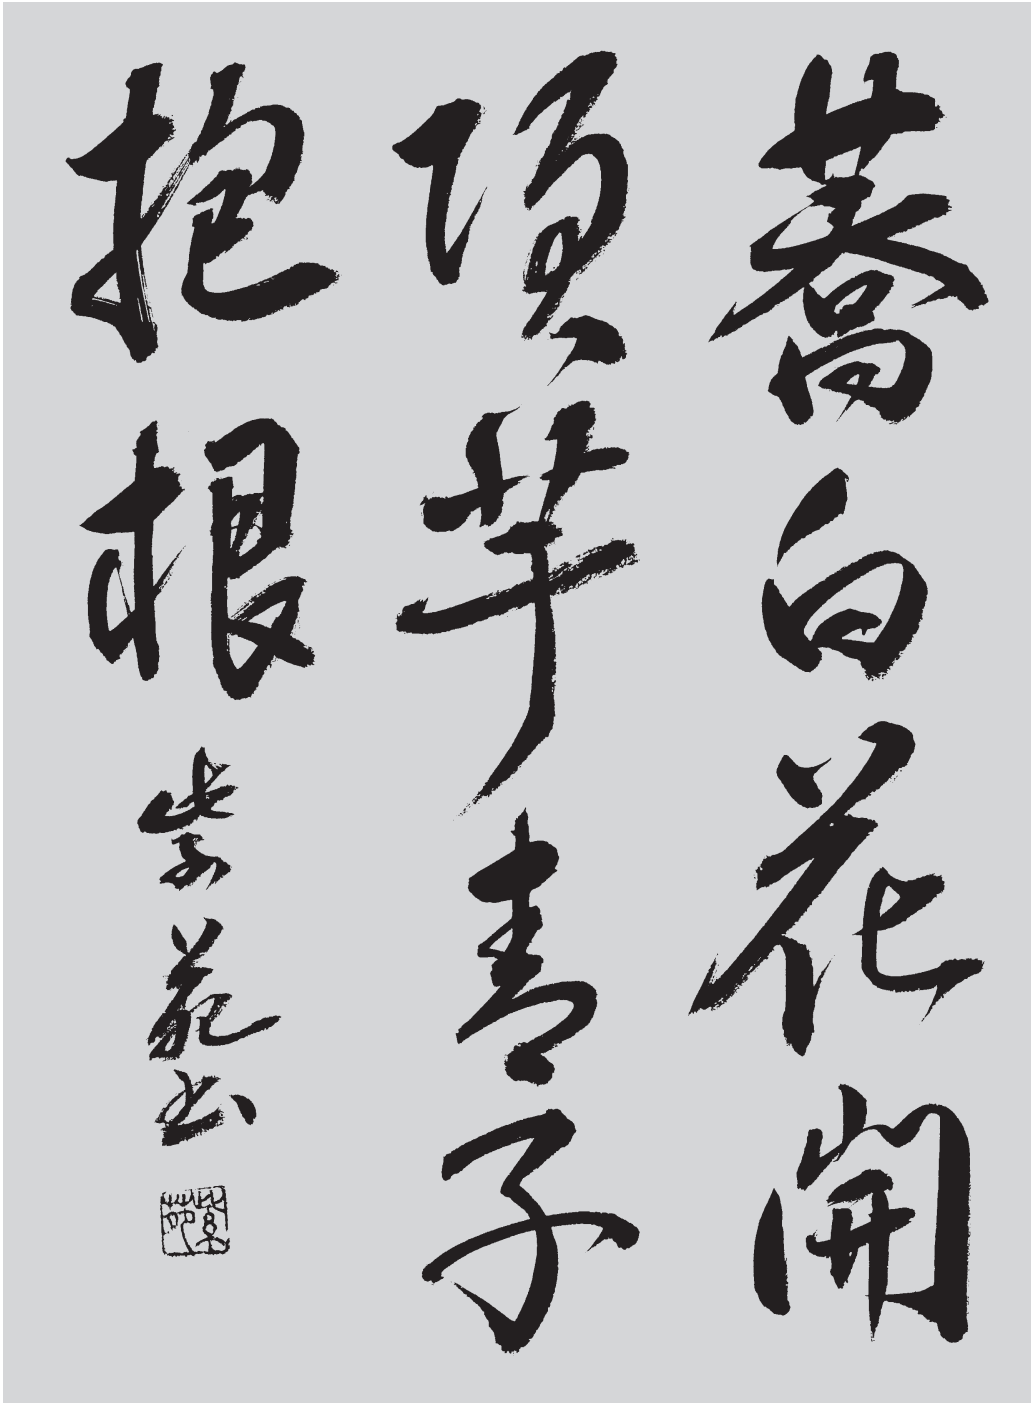 蕎白花開
頂芋青子
抱根
紫苑書
紫苑